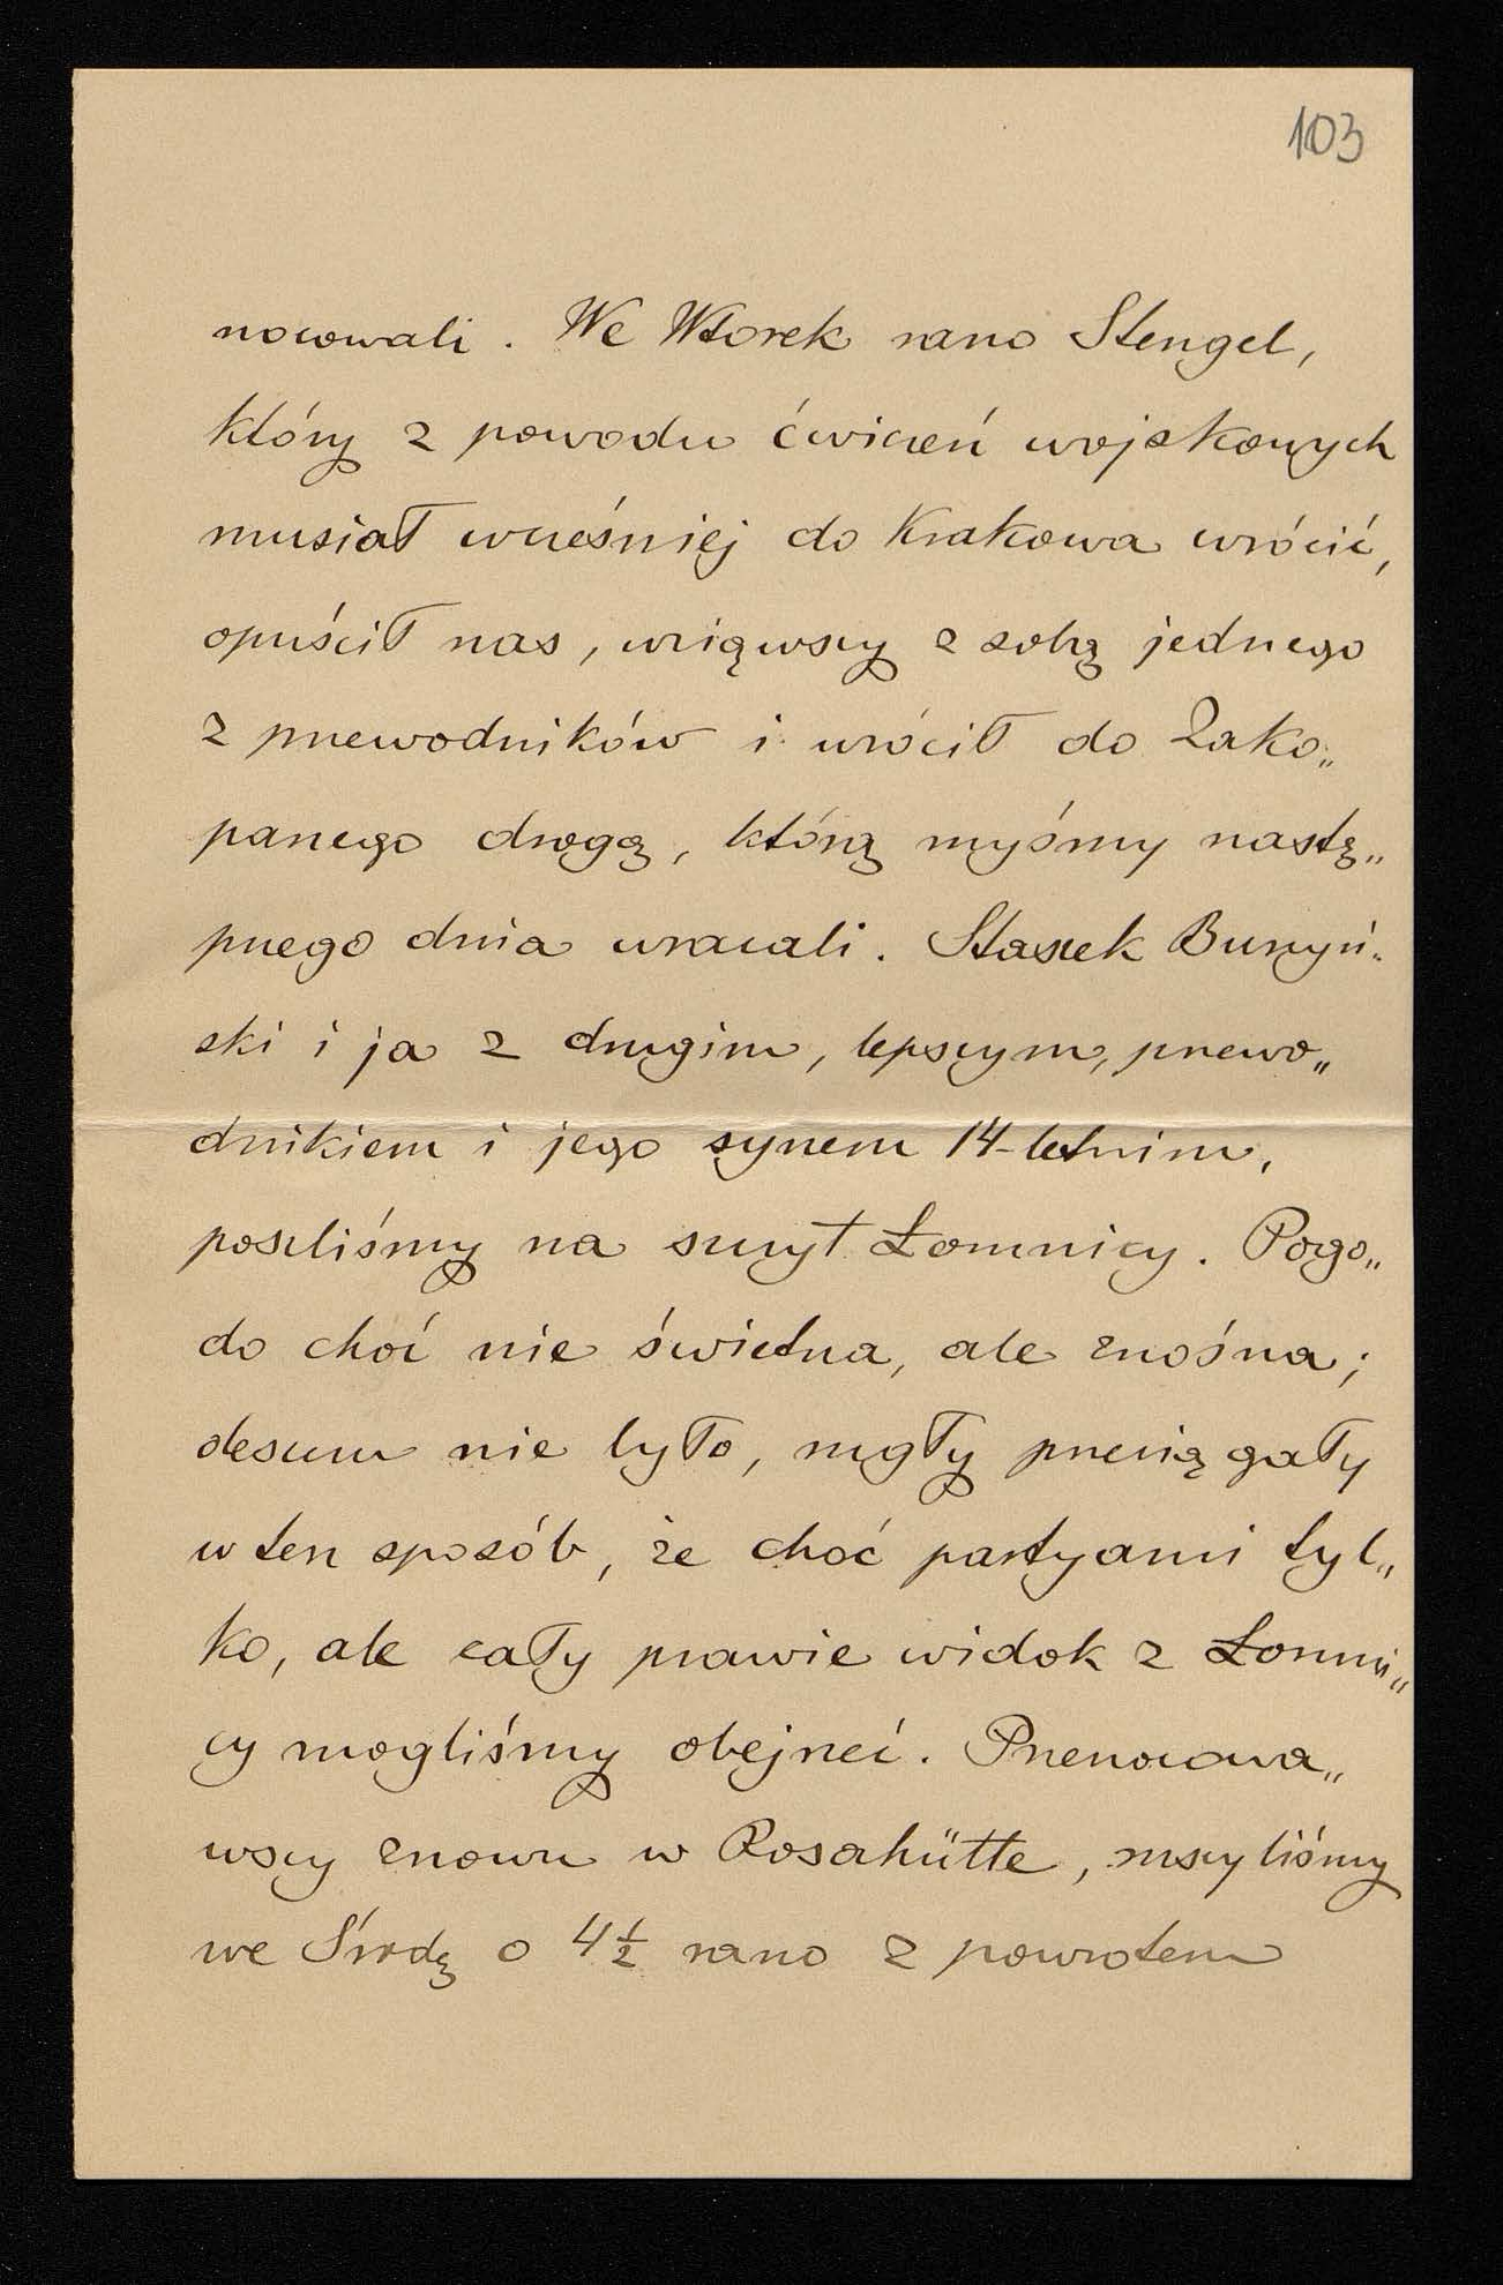 103
nocowali. We Wtorek rano Stengel,
który z powodu ćwiczeń wojskowych
musiał wcześniej do Krakowa wrócić,
opuścił nas, wziąwszy z sobą jednego
z przewodników i wrócił do Zako„
panego drogą, którą myśmy nastę„
pnego dnia wracali. Staszek Burzyń„
ski i ja z drugim, lepszym, przewo„
dnikiem i jego synem 14-letnim,
poszliśmy na szczyt Łomnicy. Pogo„
da choć nie świetna, ale znośna;
deszczu nie było, mgły przeciągały
w ten sposób, że choć partyami tyl„
ko, ale cały prawie widok z Łomni„
cy mogliśmy obejrzeć. Przenocowa„
wszy znowu w Rosahütte, ruszyliśmy
we Środę o 4½ rano z powrotem